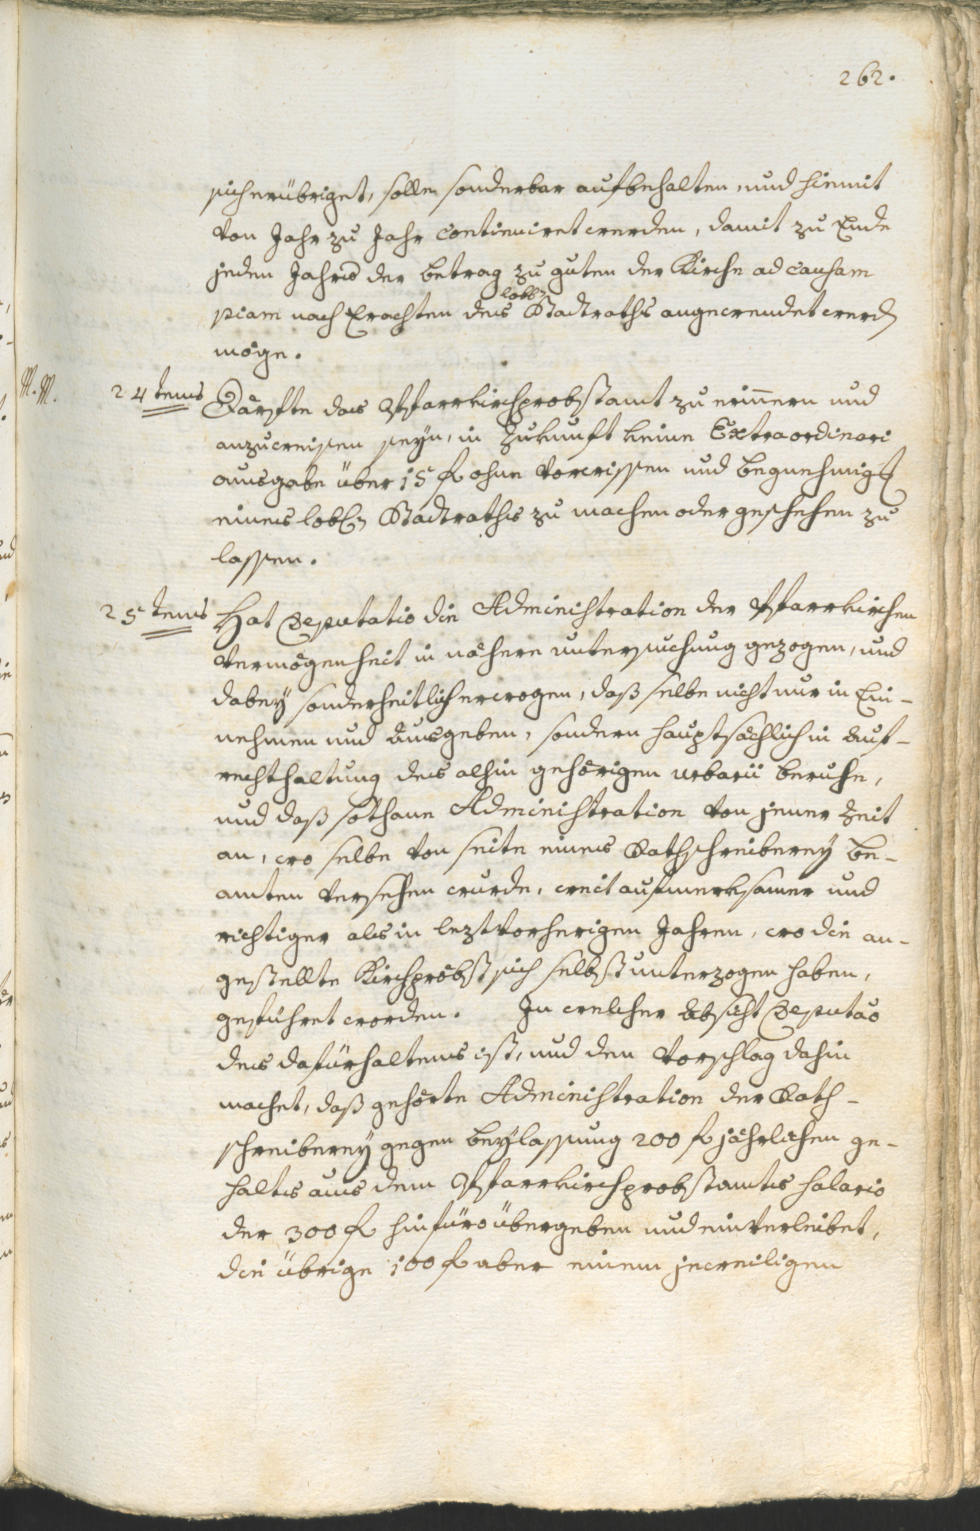 262.
sich erübriget, solle sonderbar aufbehalten, und hiemit
von Jahr zu Jahr continuiret werden, damit zu Ende
jeden Jahrs der betrag zu guten der Kirche ad causam
piam nach Erachten des löbl: Stadtraths angewendet werd
möge.
M. M.
24tens Därffte das Pfarrkirchprobstamt zu erinnern und
anzuweisen seyn, in Zukunft keine Extraordinari
ausgabe über 15 f ohne vorwissen und begnehmig
eines löbl: Stadtraths zu machen oder geschehen zu
lassen.
25tens Hat Deputatio die Administration der Pfarrkirchen
vermögenheit in nähere untersuchung gezogen, und
dabey sonderheitlich erwogen, daß selbe nicht nur in Ein-
nehmen und Ausgeben, sondern hauptsächlich in Auf-
rechthaltung des alhin gehörigen urbarii beruhe,
und daß sothane Administration von jener Zeit
an, wo selbe von seite eines Rathschreiberey be-
amten versehen wurde, weit aufmerksamer und
richtiger als in lezt vorherigen Jahren, wo die an-
gestellte Kirchpröbst sich selbst unterzogen haben,
geführet worden. In welcher Absicht Deputao
des dafürhaltens ist, und den Vorschlag dahin
machet, daß gehörte Administration der Rath-
schreiberey gegen beylassung 200 f jährlichen ge-
haltes aus dem Pfarrkirchprobstamts salario
der 300 f hinfüro übergeben und einverleibet,
die übrige 100 f aber einem jeweiligen